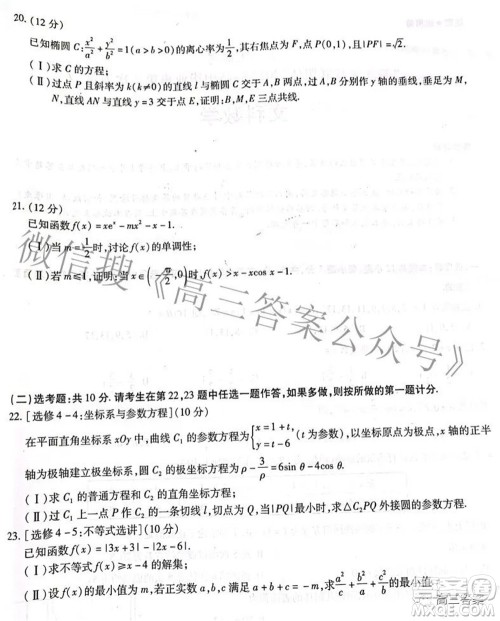 20. (12 分)
已知椭圆 C: x²/a² + y²/b² = 1(a>b>0)的离心率为 1/2, 其右焦点为 F, 点 P(0,1), 且|PF|=√2.
(Ⅰ)求 C 的方程;
(Ⅱ)过点 P 且斜率为 k(k≠0)的直线 l 与椭圆 C 交于 A, B 两点, 过 A, B 分别作 y 轴的垂线, 垂足为 M,
N, 直线 AN 与直线 y=3 交于点 E, 证明: B, M, E 三点共线.
21. (12 分)
已知函数 f(x)=xeˣ-mx²-x-1.
(Ⅰ)当 m=1/2 时, 讨论 f(x)的单调性;
(Ⅱ)若 m≤1, 证明: 当 x∈(-π/2,0)时, f(x)>x-xcos x-1.
微信搜《高三答案公众号》
(二)选考题: 共 10 分. 请考生在第 22, 23 题中任选一题作答, 如果多做, 则按所做的第一题计分.
22. [选修 4-4: 坐标系与参数方程](10 分)
在平面直角坐标系 xOy 中, 曲线 C₁ 的参数方程为{x=1+t, y=t-6 (t 为参数), 以坐标原点为极点, x 轴的正半
轴为极轴建立极坐标系, 圆 C₂ 的极坐标方程为 ρ-3/ρ=6sin θ-4cos θ.
(Ⅰ)求 C₁ 的普通方程和 C₂ 的直角坐标方程;
(Ⅱ)过 C₁ 上一点 P 作 C₂ 的一条切线 l, 切点为 Q, 当|PQ|最小时, 求△C₂PQ 外接圆的参数方程.
23. [选修 4-5: 不等式选讲](10 分)
已知函数 f(x)=|3x+3|-|2x-6|.
(Ⅰ)求不等式 f(x)≥-x 的解集;
(Ⅱ)设 f(x)的最小值为 m, 若正实数 a,b,c 满足 a+b+c=-m, 求 a²/c+c²/b+b²/a 的最小值
高三答案